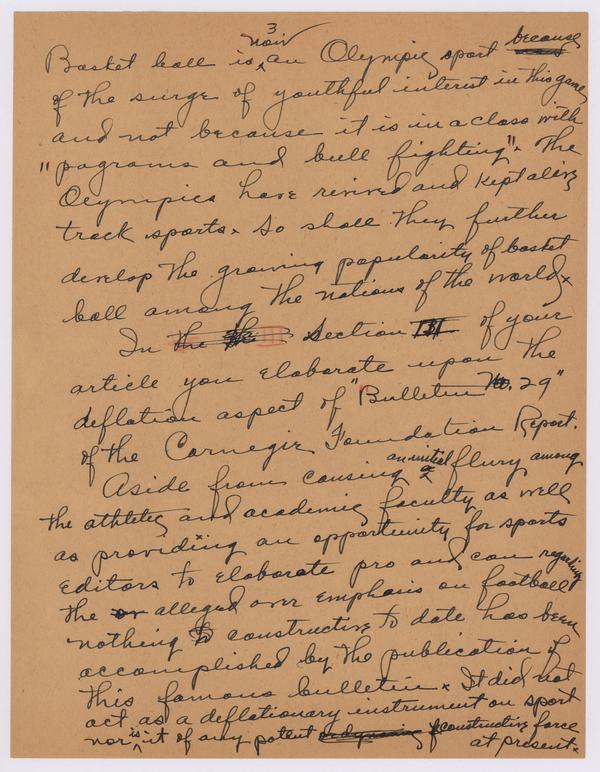 3
Basket ball is now an Olympic sport because
of the surge of youthful interest in this game
and not because it is in a class with
"pograms and bull fighting". The
Olympics have revived and kept alive
track sports. So shall they further
develop the growing popularity of basket
ball among the nations of the world.
In the Section III of your
article you elaborate upon the
deflation aspect of "Bulletin No. 29"
of the Carnegie Foundation Report.
Aside from causing an initial flury among
the athletic and academic faculty as well
as providing an opportunity for sports
editors to elaborate pro and con regarding
the alleged over emphasis on football
nothing constructive to date has been
accomplished by the publication of
this famous bulletin. It did not
act as a deflationary instrument on sport
nor is it of any potent constructive force
at present.